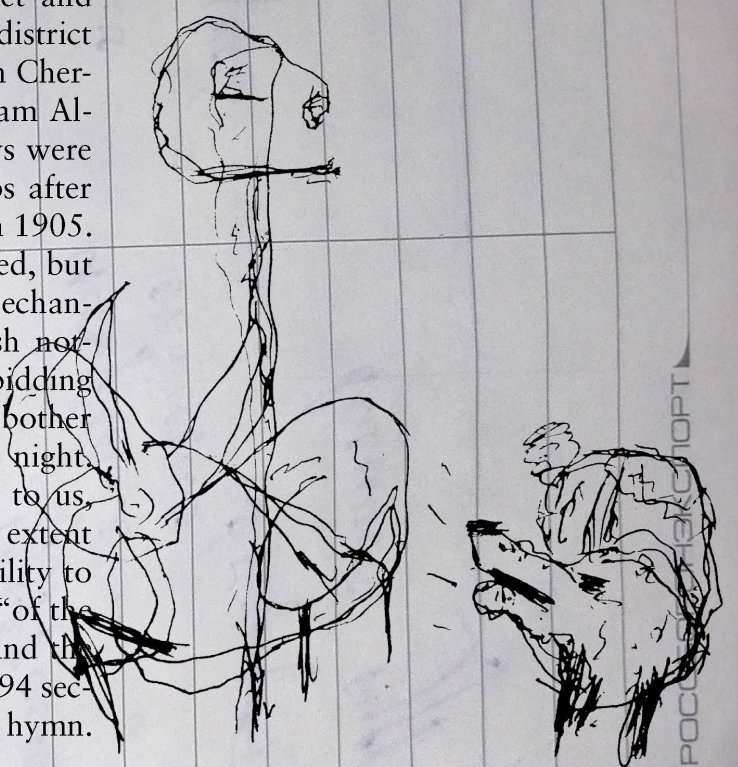 and
district
n Cher-
am Al-
were
after
1905.
ed, but
echan-
sh not-
bidding
bother
night.
to us,
extent
ility to
“of the
nd the
94 sec-
hymn.